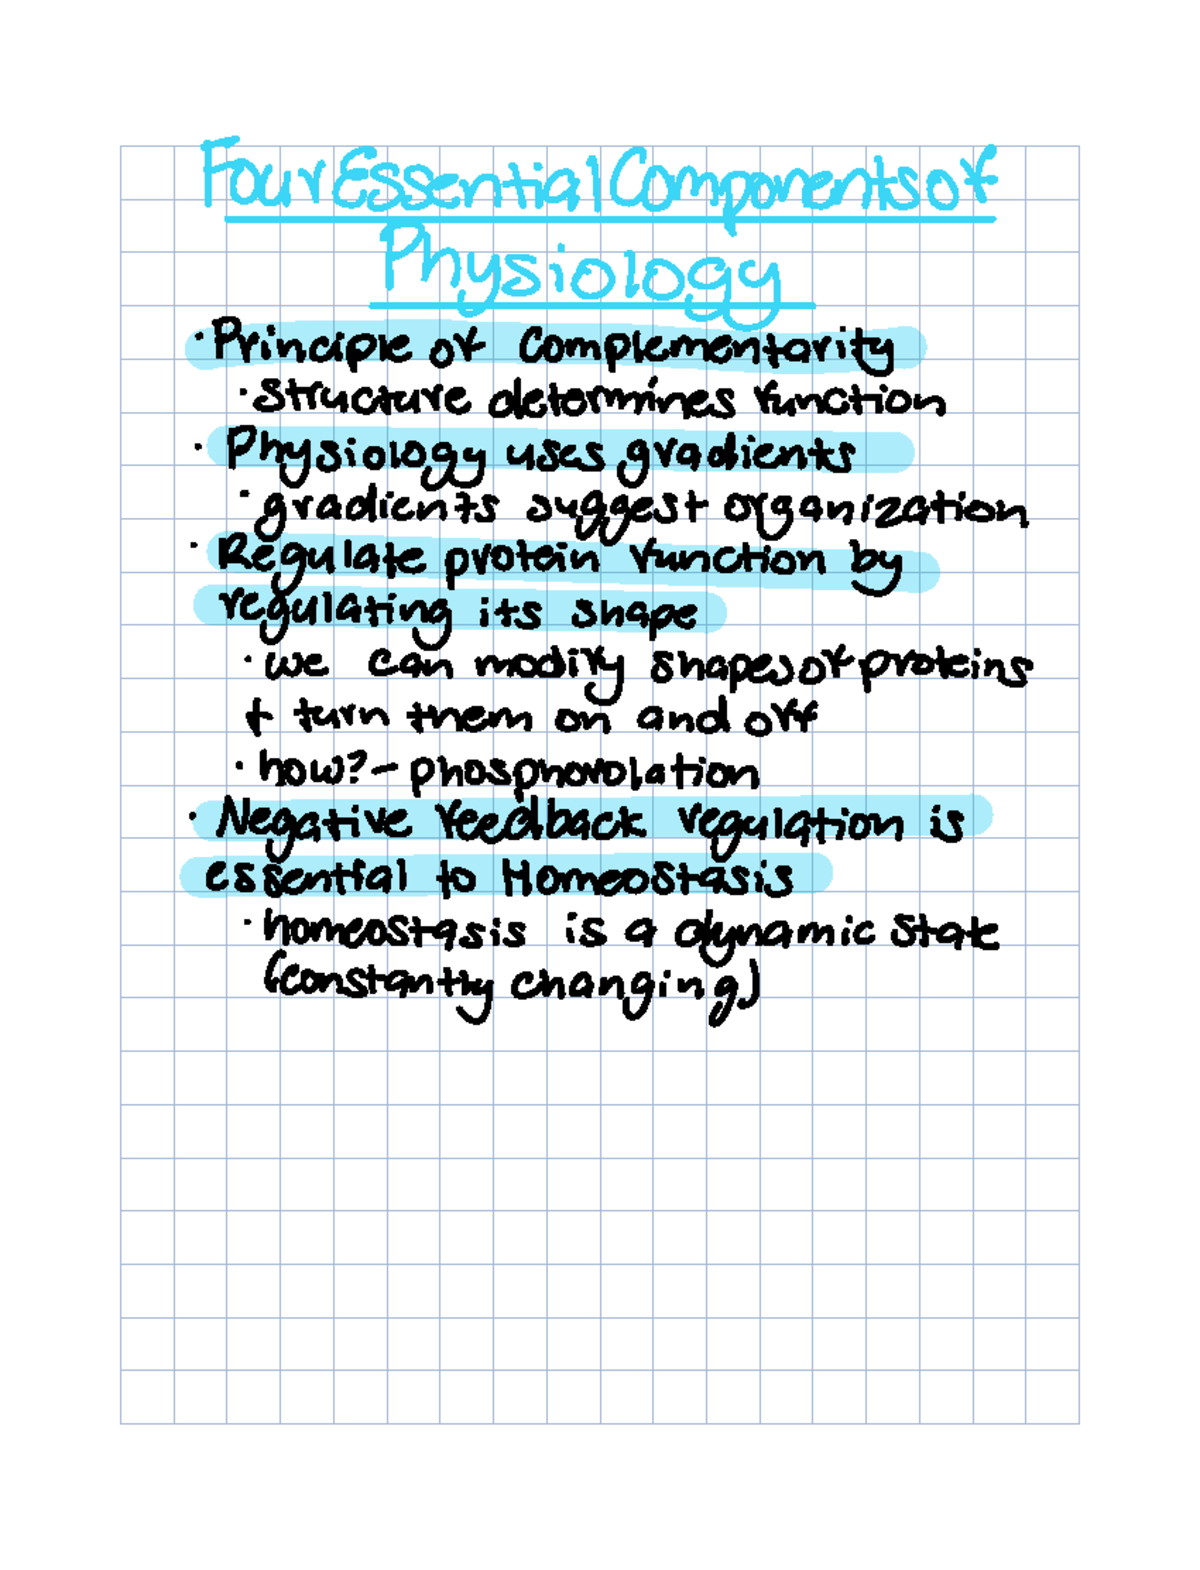 Four Essential Components of
Physiology
· Principle of Complementarity
· Structure determines function
· Physiology uses gradients
· gradients suggest organization
· Regulate protein function by
regulating its shape
· we can modify shapes of proteins
+ turn them on and off
· how? - phosphorolation
· Negative feedback regulation is
essential to Homeostasis
· homeostasis is a dynamic state
(constantly changing)